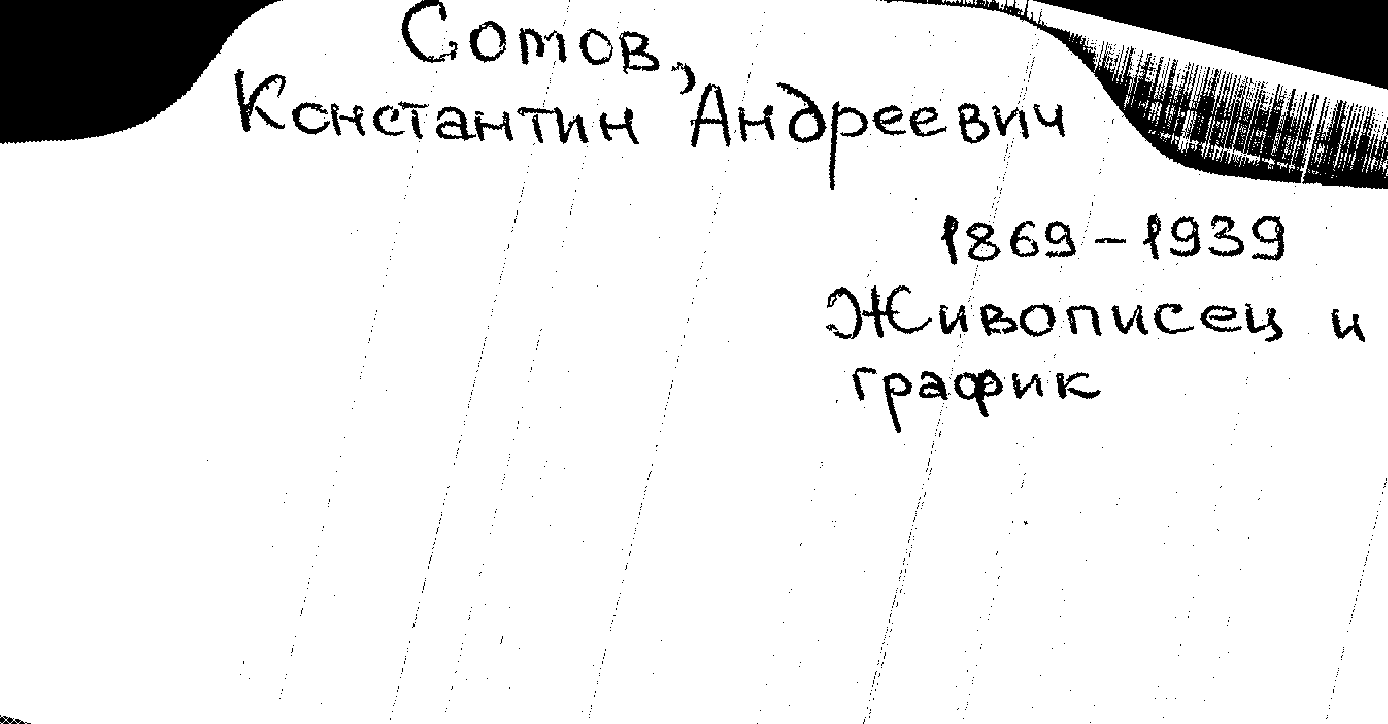 Сомов,
Константин Андреевич
1869-1939
Живописец и
график